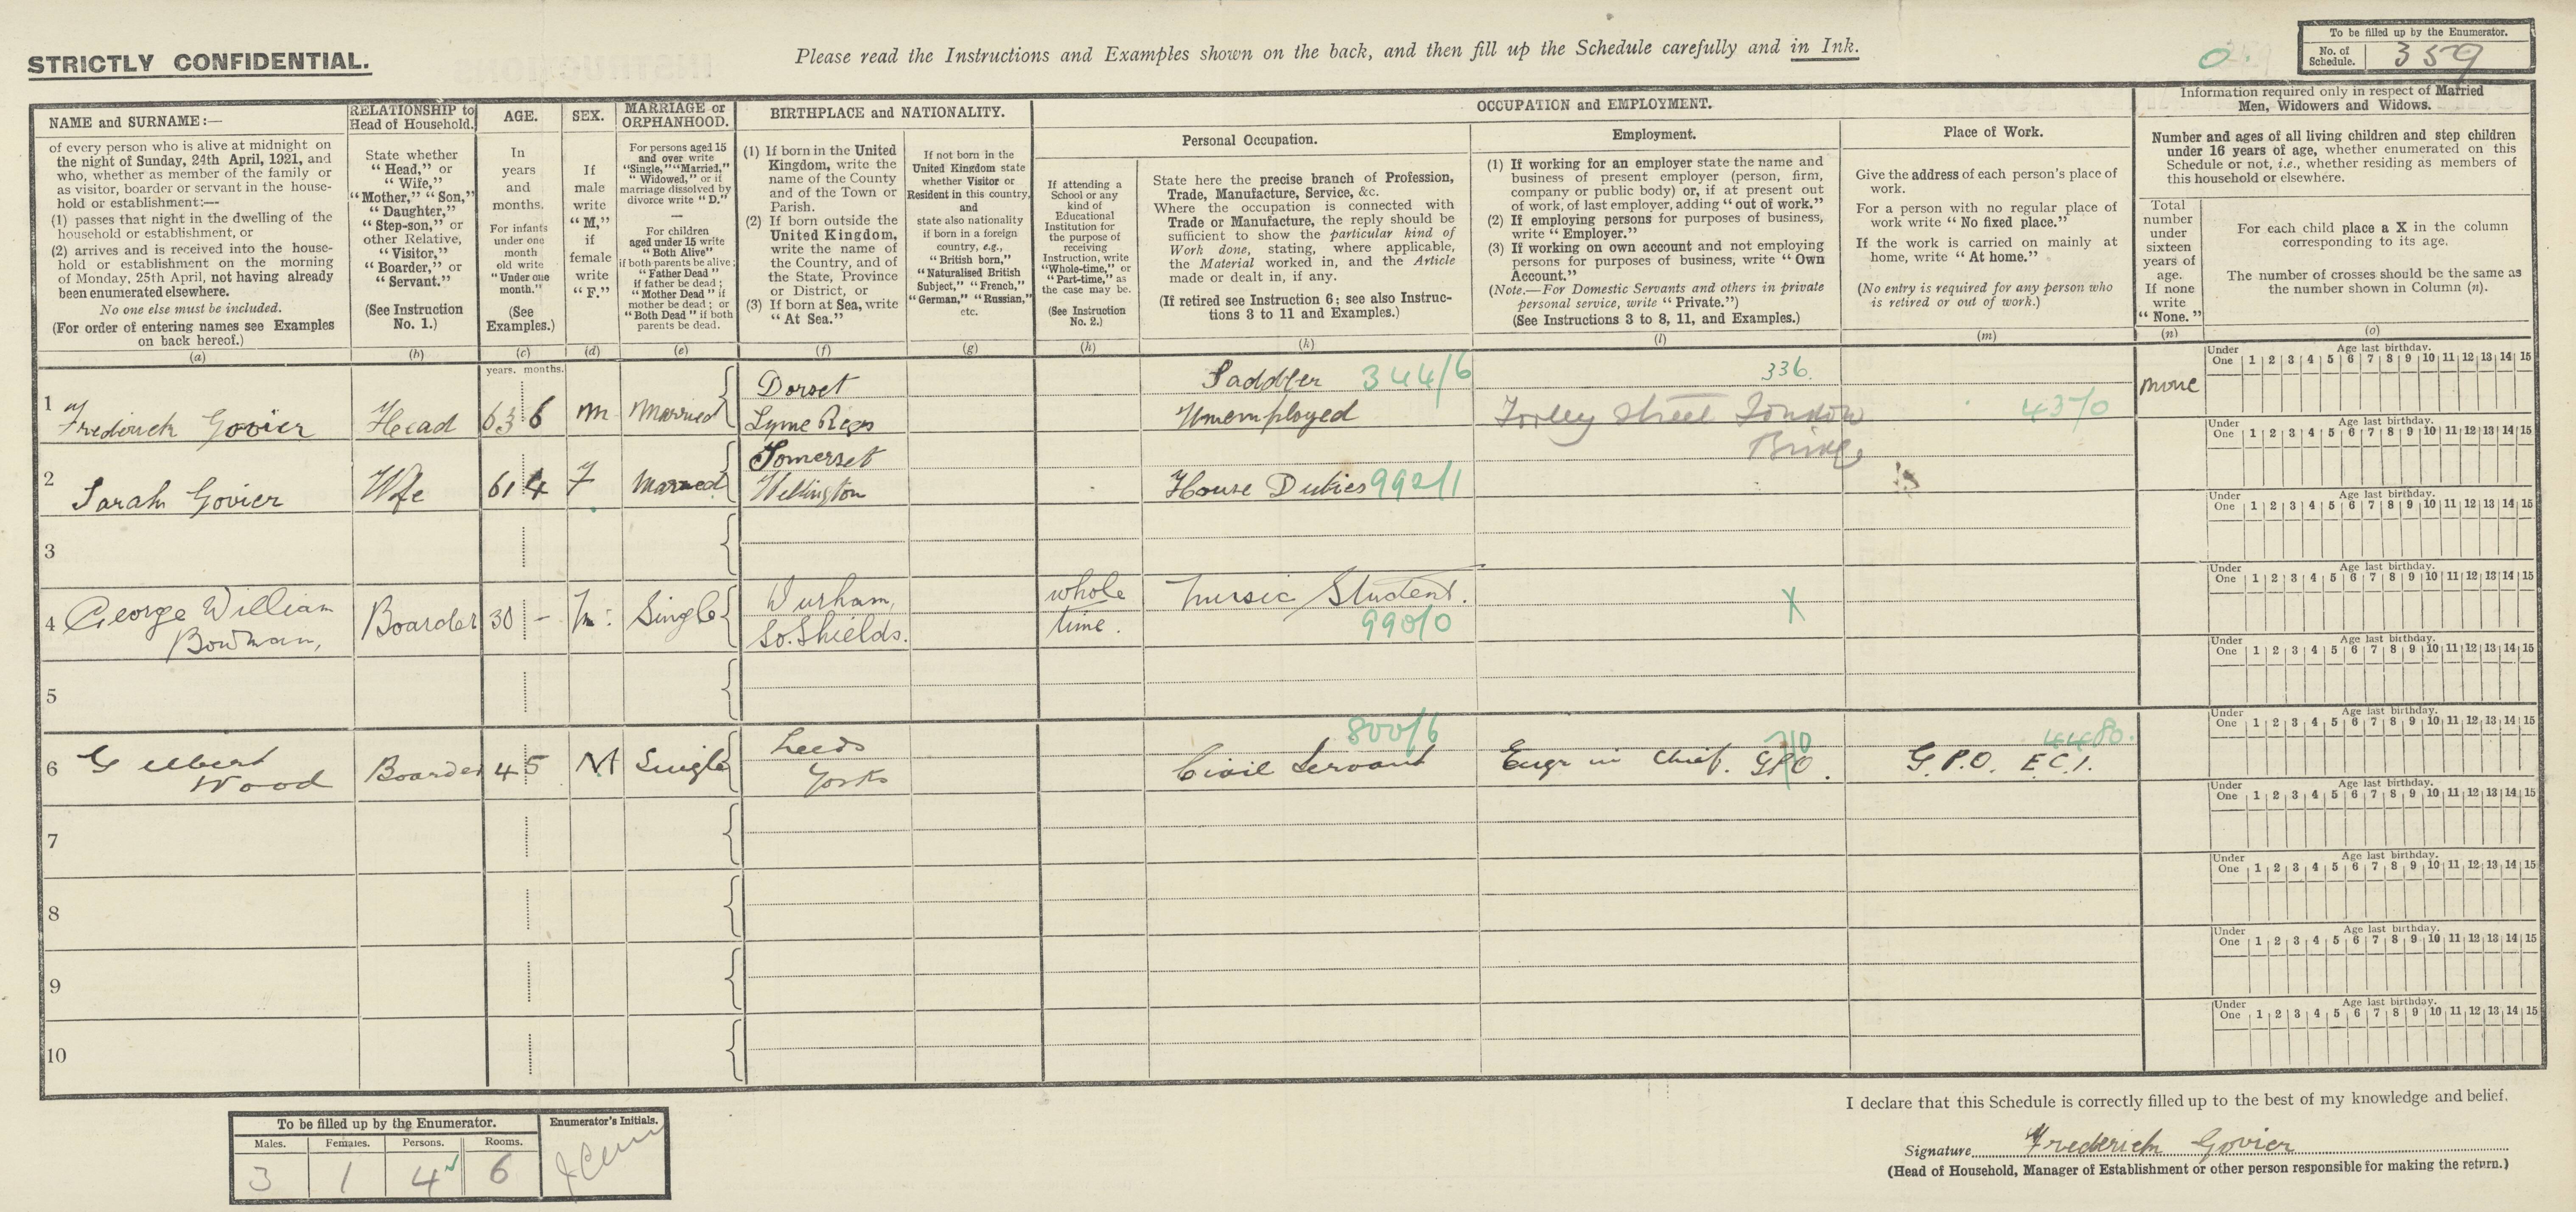 STRICTLY CONFIDENTIAL.
Please read the Instructions and Examples shown on the back, and then fill up the Schedule carefully and in Ink.
0.
To be filled up by the Enumerator.
No. of Schedule. 359
NAME and SURNAME:—
of every person who is alive at midnight on
the night of Sunday, 24th April, 1921, and
who, whether as member of the family or
as visitor, boarder or servant in the house-
hold or establishment:—
(1) passes that night in the dwelling of the
household or establishment, or
(2) arrives and is received into the house-
hold or establishment on the morning
of Monday, 25th April, not having already
been enumerated elsewhere.
No one else must be included.
(For order of entering names see Examples
on back hereof.)
(a)
RELATIONSHIP to
Head of Household.
State whether
"Head," or
"Wife,"
"Mother," "Son,"
"Daughter,"
"Step-son," or
other Relative,
"Visitor,"
"Boarder," or
"Servant."
(See Instruction
No. 1.)
(b)
AGE.
In
years
and
months.
For infants
under one
month
old write
"Under one
month."
(See
Examples.)
(c)
SEX.
If
male
write
"M,"
if
female
write
"F."
(d)
MARRIAGE or
ORPHANHOOD.
For persons aged 15
and over write
"Single," "Married,"
"Widowed," or if
marriage dissolved by
divorce write "D."
—
For children
aged under 15 write
"Both Alive"
if both parents be alive;
"Father Dead"
if father be dead;
"Mother Dead" if
mother be dead; or
"Both Dead" if both
parents be dead.
(e)
BIRTHPLACE and NATIONALITY.
(1) If born in the United
Kingdom, write the
name of the County
and of the Town or
Parish.
(2) If born outside the
United Kingdom,
write the name of
the Country, and of
the State, Province
or District, or
(3) If born at Sea, write
"At Sea."
(f)
If not born in the
United Kingdom state
whether Visitor or
Resident in this country,
and
state also nationality
if born in a foreign
country, e.g.,
"British born,"
"Naturalised British
Subject," "French,"
"German," "Russian,"
etc.
(g)
OCCUPATION and EMPLOYMENT.
Personal Occupation.
If attending a
School or any
kind of
Educational
Institution for
the purpose of
receiving
Instruction, write
"Whole-time," or
"Part-time," as
the case may be.
(See Instruction
No. 2.)
(h)
State here the precise branch of Profession,
Trade, Manufacture, Service, &c.
Where the occupation is connected with
Trade or Manufacture, the reply should be
sufficient to show the particular kind of
Work done, stating, where applicable,
the Material worked in, and the Article
made or dealt in, if any.
(If retired see Instruction 6; see also Instruc-
tions 3 to 11 and Examples.)
(k)
Employment.
(1) If working for an employer state the name and
business of present employer (person, firm,
company or public body) or, if at present out
of work, of last employer, adding "out of work."
(2) If employing persons for purposes of business,
write "Employer."
(3) If working on own account and not employing
persons for purposes of business, write "Own
Account."
(Note.—For Domestic Servants and others in private
personal service, write "Private.")
(See Instructions 3 to 8, 11, and Examples.)
(l)
Place of Work.
Give the address of each person's place of
work.
For a person with no regular place of
work write "No fixed place."
If the work is carried on mainly at
home, write "At home."
(No entry is required for any person who
is retired or out of work.)
(m)
Information required only in respect of Married
Men, Widowers and Widows.
Number and ages of all living children and step children
under 16 years of age, whether enumerated on this
Schedule or not, i.e., whether residing as members of
this household or elsewhere.
Total
number
under
sixteen
years of
age.
If none
write
"None."
(n)
For each child place a X in the column
corresponding to its age.
The number of crosses should be the same as
the number shown in Column (n).
(o)
years. months.
Under One Age last birthday. 1 2 3 4 5 6 7 8 9 10 11 12 13 14 15
1 Frederick Govier Head 63 6 M Married Dorset Lyme Regis Saddler 344/6 Unemployed 336. Tooley Street London Bridge 437/0 None
Under One Age last birthday. 1 2 3 4 5 6 7 8 9 10 11 12 13 14 15
2 Sarah Govier Wife 61 4 F Married Somerset Wellington House Duties 992/1
Under One Age last birthday. 1 2 3 4 5 6 7 8 9 10 11 12 13 14 15
3
Under One Age last birthday. 1 2 3 4 5 6 7 8 9 10 11 12 13 14 15
4 George William Bowman, Boarder 30 – M: Single Durham, So. Shields. whole time. Music Student. 990/0 X
Under One Age last birthday. 1 2 3 4 5 6 7 8 9 10 11 12 13 14 15
5
Under One Age last birthday. 1 2 3 4 5 6 7 8 9 10 11 12 13 14 15
6 Gilbert Wood Boarder 45 M Single Leeds Yorks 800/6 Civil Servant Engr in Chief. GPO. 710 G.P.O. E.C.1. 4480.
Under One Age last birthday. 1 2 3 4 5 6 7 8 9 10 11 12 13 14 15
7
Under One Age last birthday. 1 2 3 4 5 6 7 8 9 10 11 12 13 14 15
8
Under One Age last birthday. 1 2 3 4 5 6 7 8 9 10 11 12 13 14 15
9
Under One Age last birthday. 1 2 3 4 5 6 7 8 9 10 11 12 13 14 15
10
To be filled up by the Enumerator.
Males. Females. Persons. Rooms.
3 1 4 6
Enumerator's Initials.
I declare that this Schedule is correctly filled up to the best of my knowledge and belief.
Signature Frederick Govier
(Head of Household, Manager of Establishment or other person responsible for making the return.)